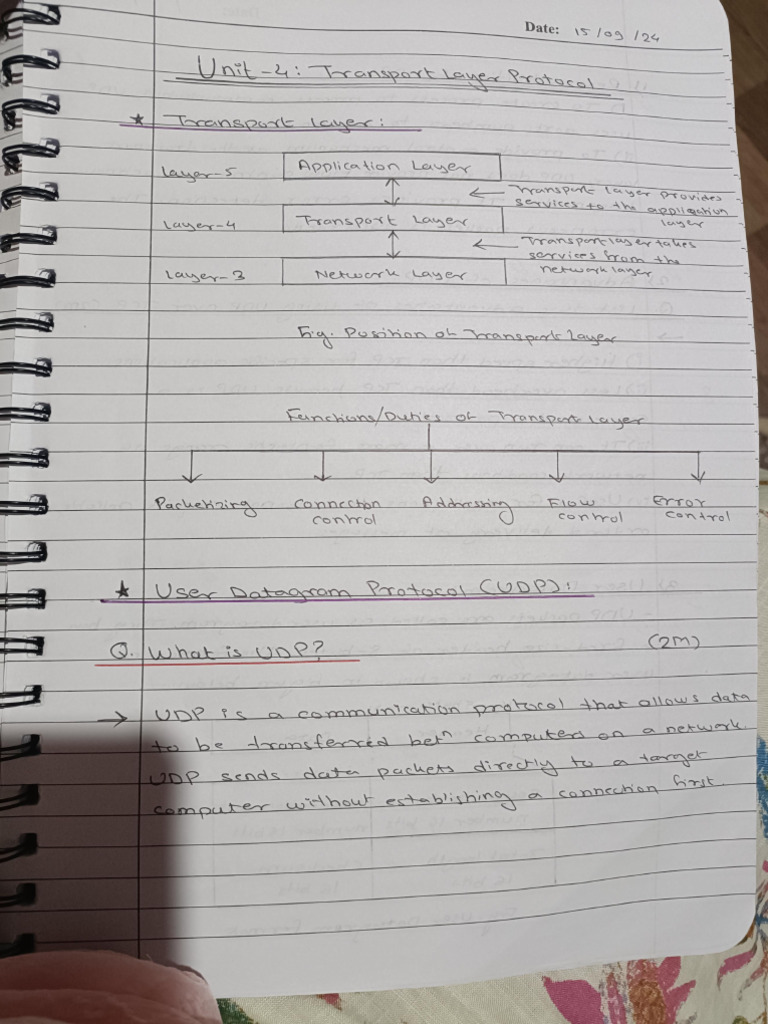 Date: 15/09/24
Unit-4: Transport Layer Protocol
★ Transport Layer:
Layer-5 Application Layer
← Transport layer provides
services to the application
layer
Layer-4 Transport Layer
← Transport layer takes
services from the
network layer
Layer-3 Network Layer
Fig. Position of Transport Layer
Functions/Duties of Transport Layer
Packetizing Connection control Addressing Flow control Error control
★ User Datagram Protocol (UDP):
Q. What is UDP? (2M)
→ UDP is a communication protocol that allows data
to be transferred betⁿ computers on a network.
UDP sends data packets directly to a target
computer without establishing a connection first.